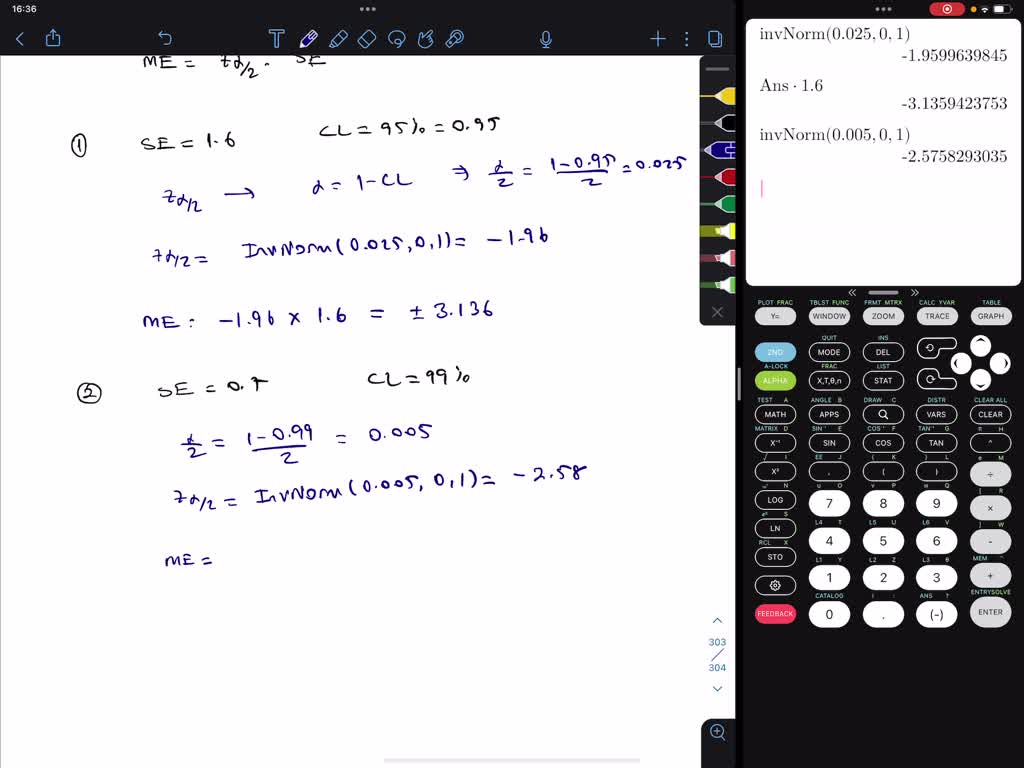 16:36
ME = zα/2 · SE
① SE = 1.6 CL = 95% = 0.95
zα/2 → α = 1 - CL ⇒ α/2 = (1-0.95)/2 = 0.025
zα/2 = InvNorm(0.025, 0, 1) = -1.96
ME: -1.96 × 1.6 = ± 3.136
② SE = CL = 99%
α/2 = (1-0.99)/2 = 0.005
zα/2 = InvNorm(0.005, 0, 1) = -2.58
ME =
303
304
invNorm(0.025, 0, 1)
-1.9599639845
Ans · 1.6
-3.1359423753
invNorm(0.005, 0, 1)
-2.5758293035
PLOT FRAC TBLST FUNC FRMT MTRX CALC YVAR TABLE
Y= WINDOW ZOOM TRACE GRAPH
QUIT INS
2ND MODE DEL
A-LOCK FRAC LIST
ALPHA X,T,θ,n STAT
TEST A ANGLE B DRAW C DISTR CLEAR ALL
MATH APPS VARS CLEAR
MATRIX D SIN⁻¹ E COS⁻¹ F TAN⁻¹ G π H
X⁻¹ SIN COS TAN ^
√ I EE J { K } L e M
X² , ( ) ÷
u O v P w Q [ R
LOG 7 8 9 ×
L4 T L5 U L6 V ] W
LN 4 5 6 -
RCL X L1 Y L2 Z L3 θ MEM "
STO 1 2 3 +
CATALOG ANS ? ENTRYSOLVE
FEEDBACK 0 . (-) ENTER